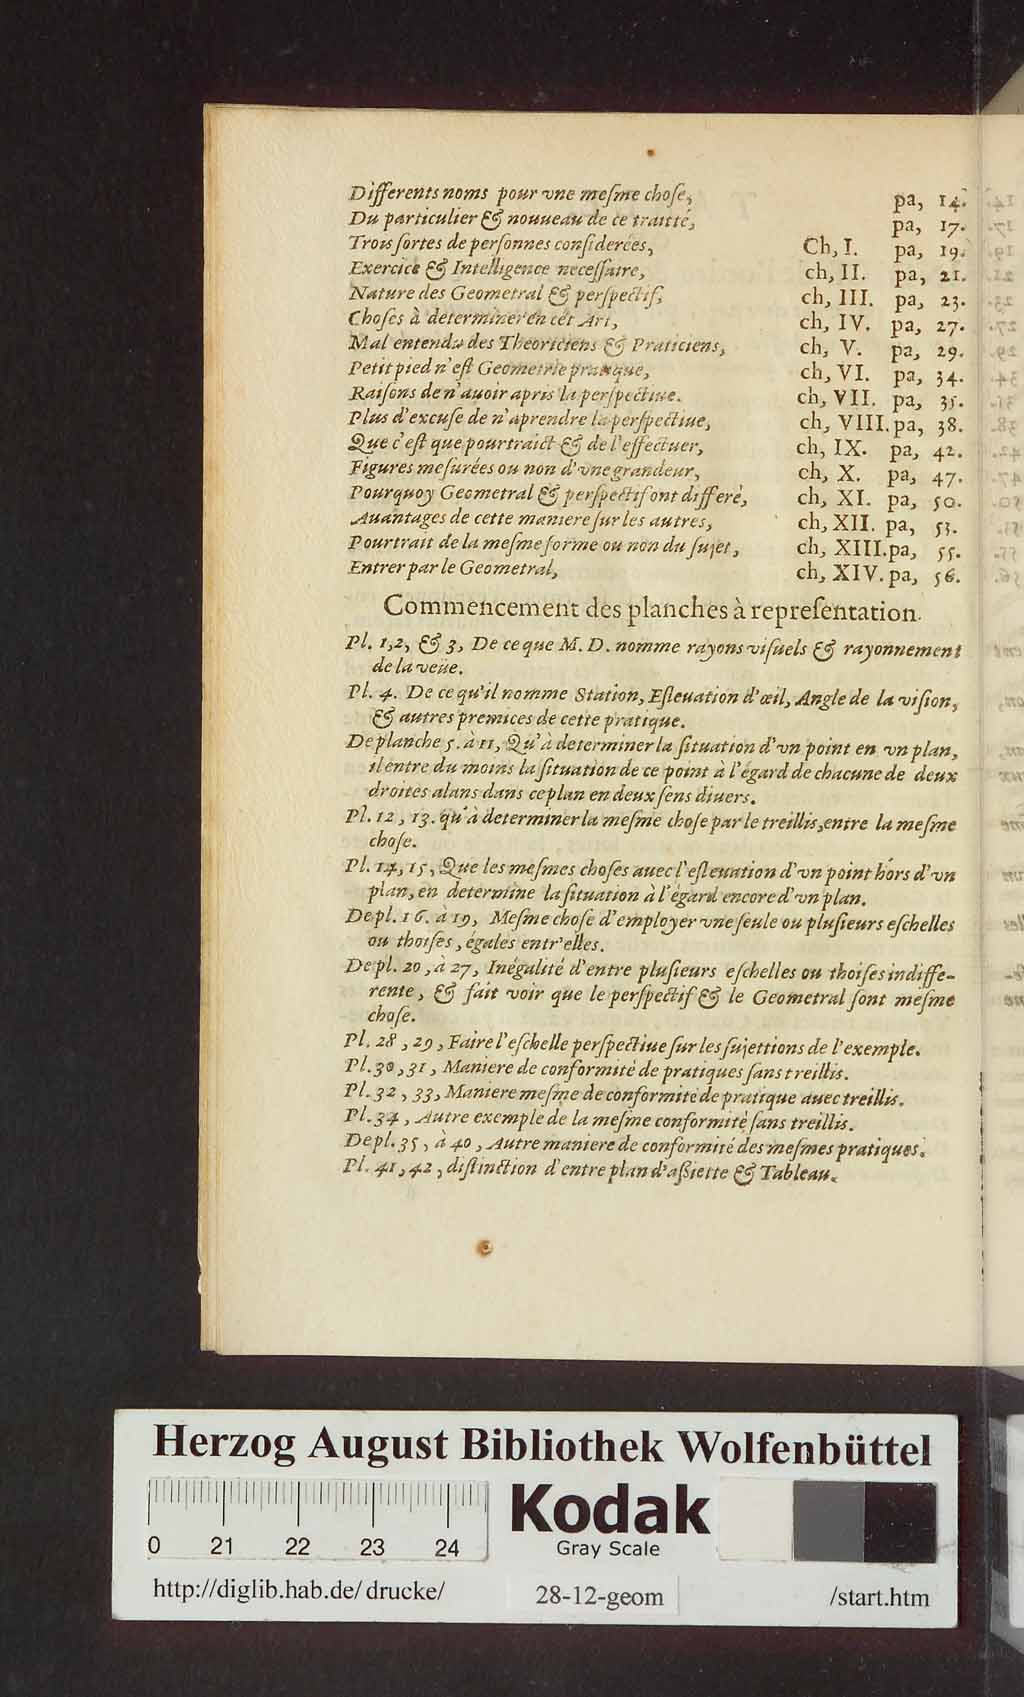 Differents noms pour vne meſme choſe, pa, 14.
Du particulier & nouueau de ce traitté, pa, 17.
Trois ſortes de perſonnes conſiderées, Ch, I. pa, 19.
Exercice & Intelligence neceſſaire, ch, II. pa, 21.
Nature des Geometral & perſpectif, ch, III. pa, 23.
Choſes à determiner en cét Art, ch, IV. pa, 27.
Mal entendu des Theoriciens & Praticiens, ch, V. pa, 29.
Petit pied n'eſt Geometrie pratique, ch, VI. pa, 34.
Raiſons de n'auoir apris la perſpectiue. ch, VII. pa, 35.
Plus d'excuſe de n'aprendre la perſpectiue, ch, VIII. pa, 38.
Que c'eſt que pourtraict & de l'effectuer, ch, IX. pa, 42.
Figures meſurées ou non d'vne grandeur, ch, X. pa, 47.
Pourquoy Geometral & perſpectif ont differé, ch, XI. pa, 50.
Auantages de cette maniere ſur les autres, ch, XII. pa, 53.
Pourtrait de la meſme forme ou non du ſujet, ch, XIII. pa, 55.
Entrer par le Geometral, ch, XIV. pa, 56.
Commencement des planches à repreſentation.
Pl. 1,2, & 3, De ce que M. D. nomme rayons viſuels & rayonnement
de la veüe.
Pl. 4. De ce qu'il nomme Station, Eſleuation d'œil, Angle de la viſion,
& autres premices de cette pratique.
De planche 5. à 11, Qu'à determiner la ſituation d'vn point en vn plan,
il entre du moins la ſituation de ce point à l'égard de chacune de deux
droites alans dans ce plan en deux ſens diuers.
Pl. 12, 13. qu'à determiner la meſme choſe par le treillis, entre la meſme
choſe.
Pl. 14, 15, Que les meſmes choſes auec l'eſleuation d'vn point hors d'vn
plan, en determine la ſituation à l'égard encore d'vn plan.
De pl. 16. à 19, Meſme choſe d'employer vne ſeule ou pluſieurs eſchelles
ou thoiſes, égales entr'elles.
De pl. 20, à 27, Inégalité d'entre pluſieurs eſchelles ou thoiſes indiffe-
rente, & fait voir que le perſpectif & le Geometral ſont meſme
choſe.
Pl. 28, 29, Faire l'eſchelle perſpectiue ſur les ſujettions de l'exemple.
Pl. 30, 31, Maniere de conformité de pratiques ſans treillis.
Pl. 32, 33, Maniere meſme de conformité de pratique auec treillis.
Pl. 34, Autre exemple de la meſme conformité ſans treillis.
De pl. 35, à 40, Autre maniere de conformité des meſmes pratiques.
Pl. 41, 42, diſtinction d'entre plan d'aſſiette & Tableau.
Herzog August Bibliothek Wolfenbüttel
Kodak
Gray Scale
0 21 22 23 24
http://diglib.hab.de/drucke/ 28-12-geom /start.htm